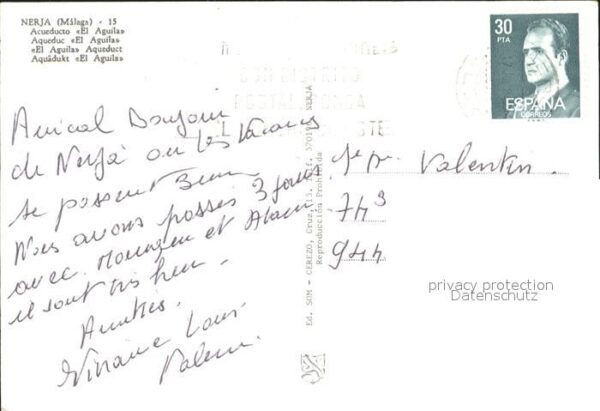 NERJA (Málaga) - 15
Acueducto «El Aguila»
Aqueduc «El Aguila»
«El Aguila» Aqueduct
Aquädukt «El Aguila»
30
PTA
ESPAÑA
CORREOS
CON DISTRITO
POSTAL
Amical Bonjour
de Nerja ou les vacances
se passent Bien
Nous avons passés 3 jours
avec et Alain
il sont très heu
Amitiés.
Viviane Louis
Valen
Valentin
743
944
Ed. SOM - CEREZO, Cruz, NERJA
Reproducción Prohibida
privacy protection
Datenschutz